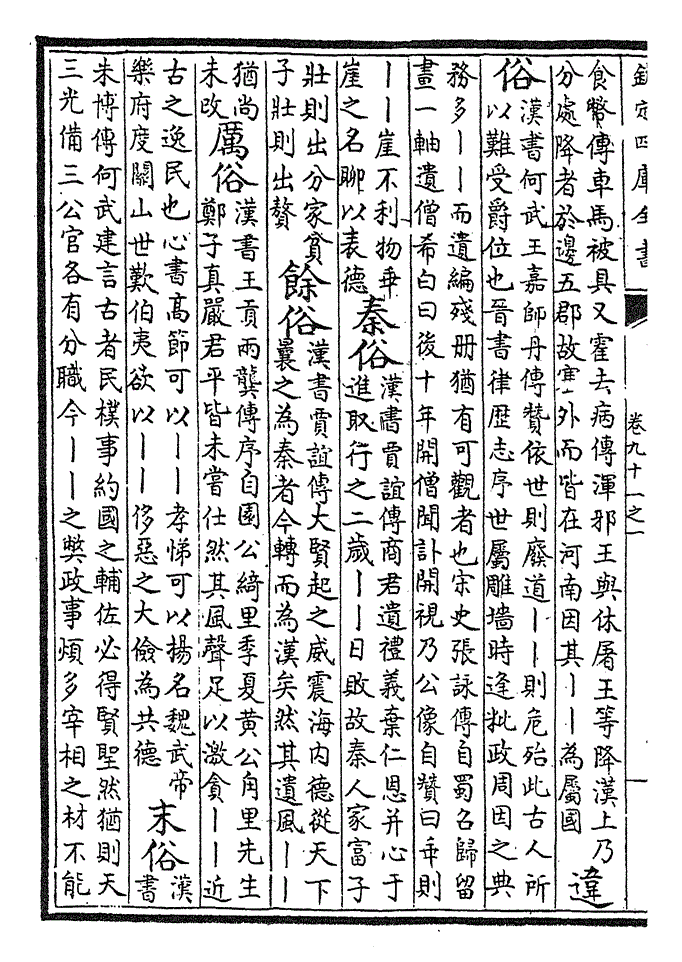 欽定四庫全書 卷九十一之一
食幣傳車馬被具又霍去病傳渾邪王與休屠王等降漢上乃
分處降者於邊五郡故塞外而皆在河南因其丨丨為屬國
違
俗
漢書何武王嘉師丹傳贊依世則廢道丨丨則危殆此古人所
以難受爵位也晉書律歴志序世屬雕墻時逢秕政周因之典
務多丨丨而遺編殘册猶有可觀者也宋史張詠傳自蜀召歸留
畫一軸遺僧希白曰後十年開僧聞訃開視乃公像自贊曰乖則
丨丨崖不利物乖
崖之名聊以表德
秦俗
漢書賈誼傳商君遺禮義棄仁恩并心于
進取行之二歲丨丨日敗故秦人家富子
壯則出分家貧
子壯則出贅
餘俗
漢書賈誼傳大賢起之威震海内德從天下
曩之為秦者今轉而為漢矣然其遺風丨丨
猶尚
未改
厲俗
漢書王貢兩龔傳序自園公綺里季夏黄公甪里先生
鄭子真嚴君平皆未嘗仕然其風聲足以激貪丨丨近
古之逸民也心書高節可以丨丨孝悌可以揚名魏武帝
樂府度關山世歎伯夷欲以丨丨侈惡之大儉為共德
末俗
漢
書
朱博傳何武建言古者民樸事約國之輔佐必得賢聖然猶則天
三光備三公官各有分職今丨丨之弊政事煩多宰相之材不能